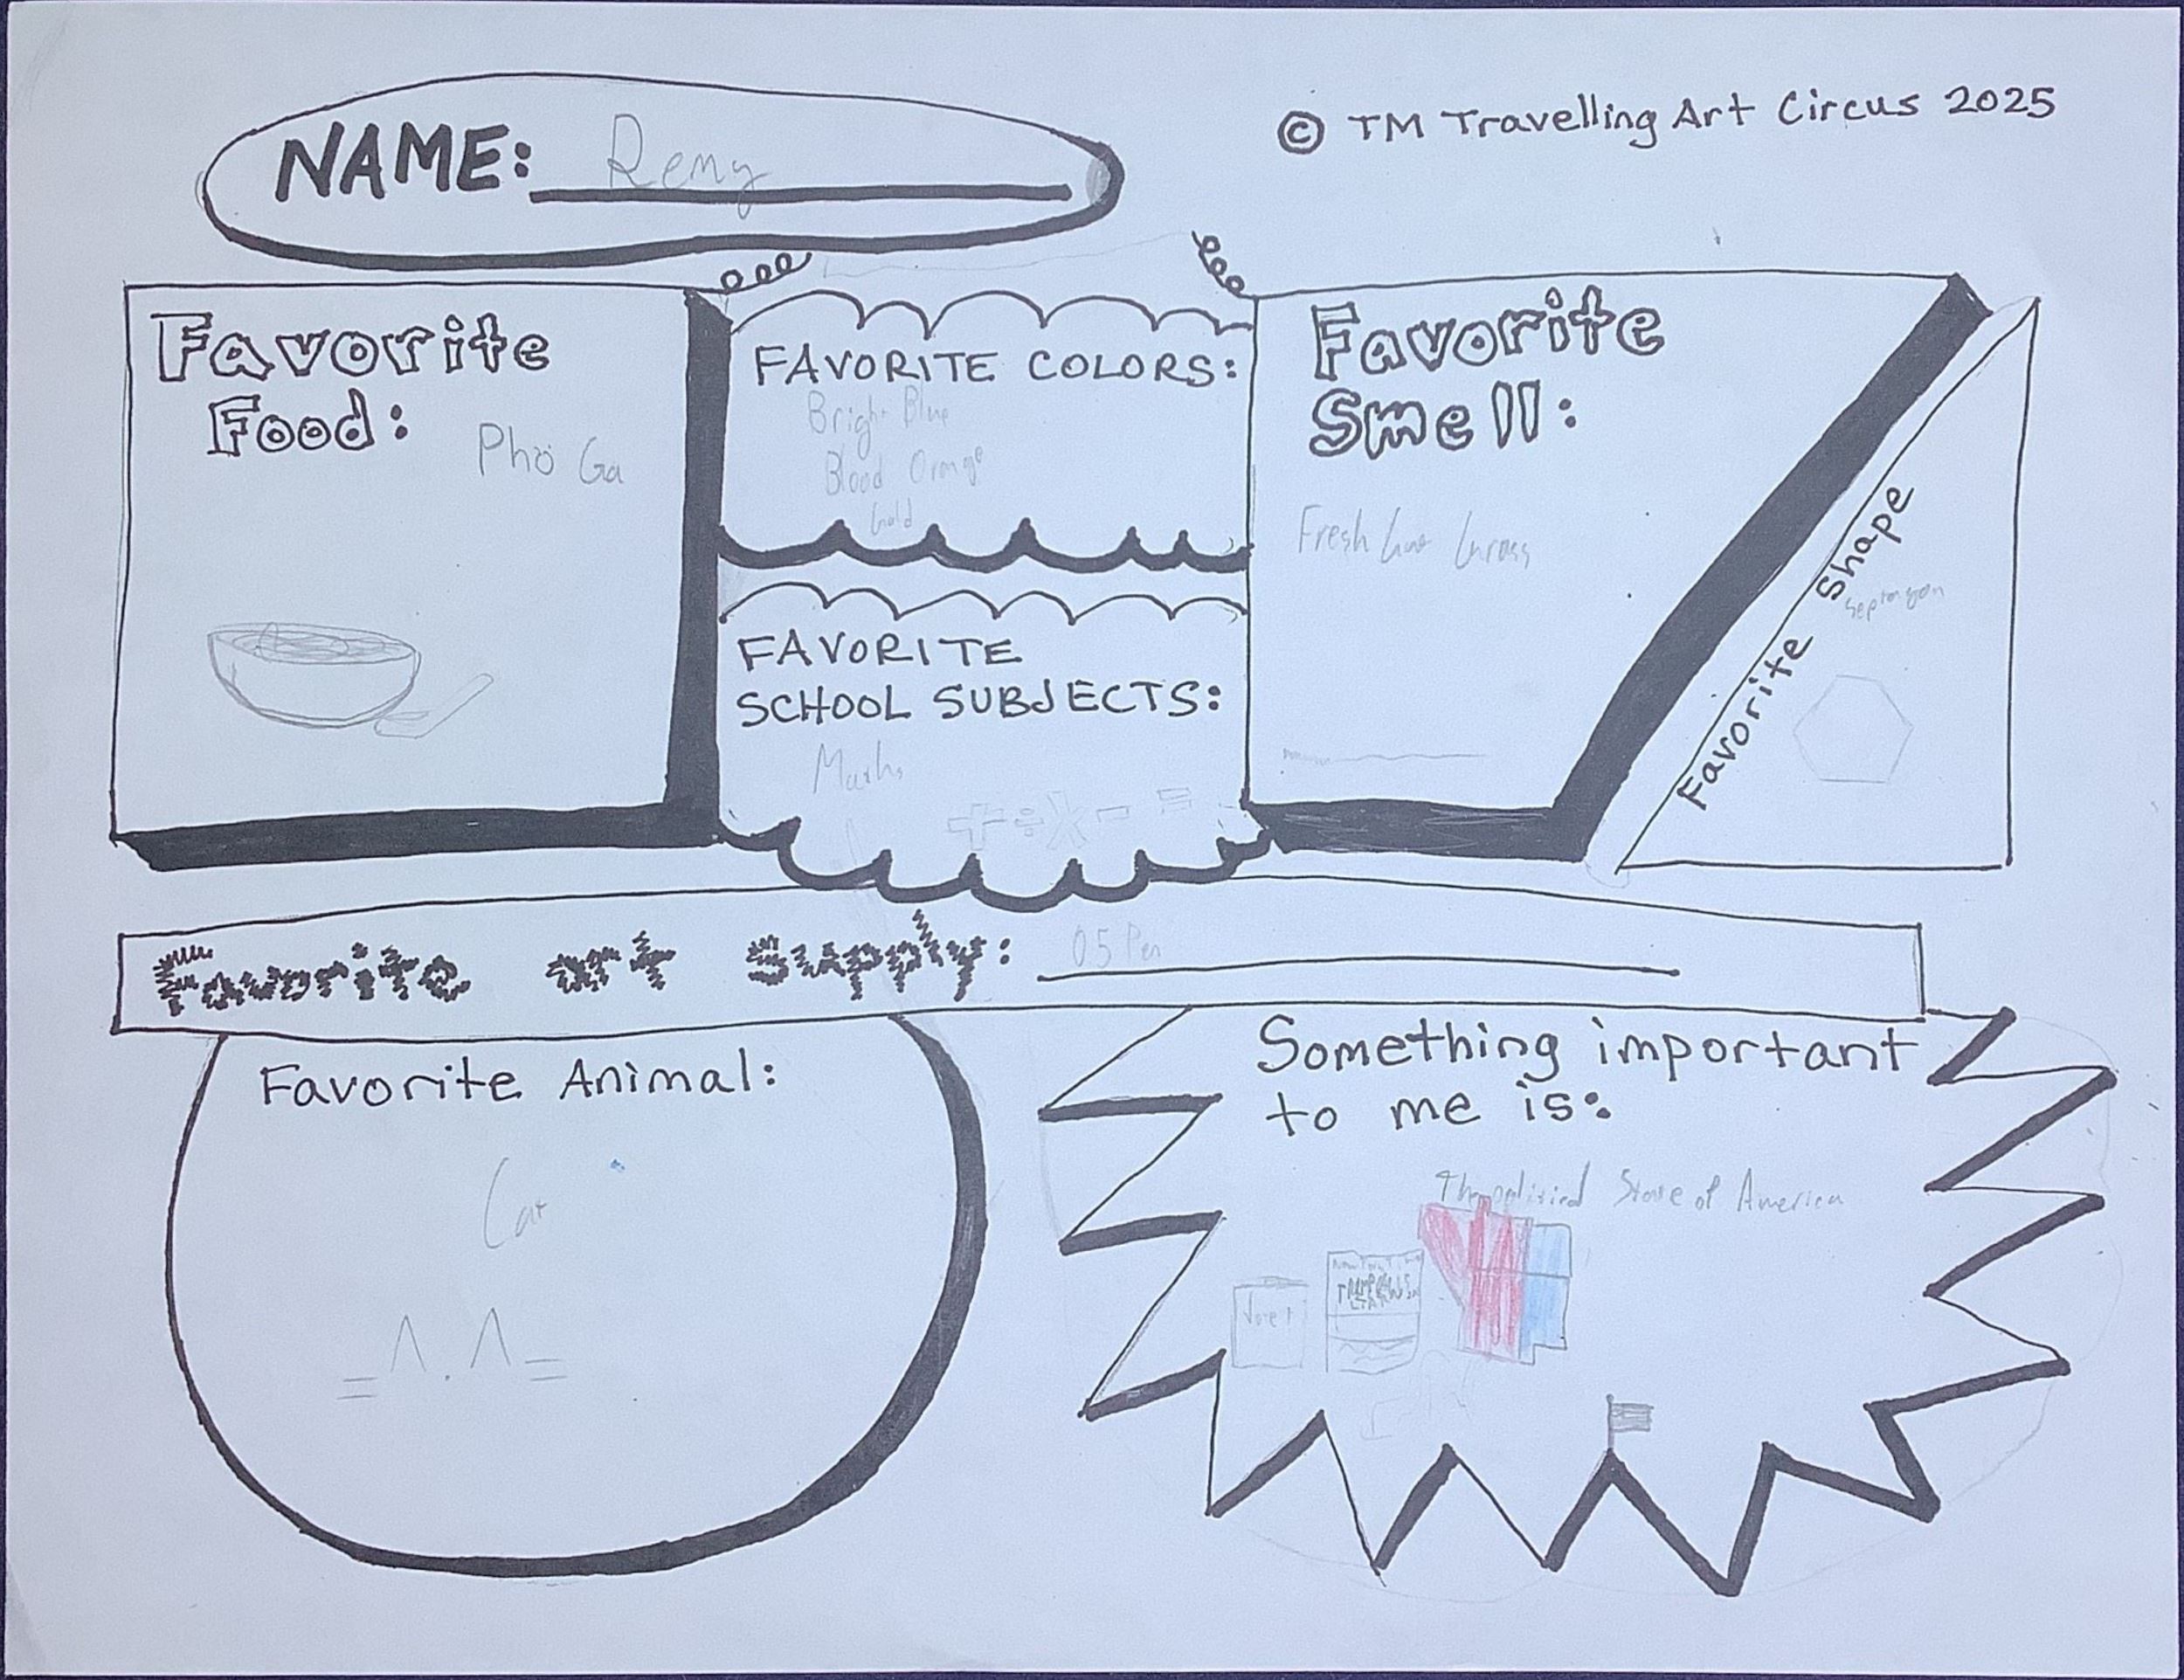 © TM Travelling Art Circus 2025
NAME: Remy
Favorite
Food:
Phö Ga
FAVORITE COLORS:
Bright Blue
Blood Orange
Gold
FAVORITE
SCHOOL SUBJECTS:
Maths
+ ÷ X - =
Favorite
Smell:
Fresh Grass
Favorite Shape
Septagon
Favorite art supply: 0.5 Pen
Favorite Animal:
Cat
=^.^=
Something important
to me is:
State of America
Vote